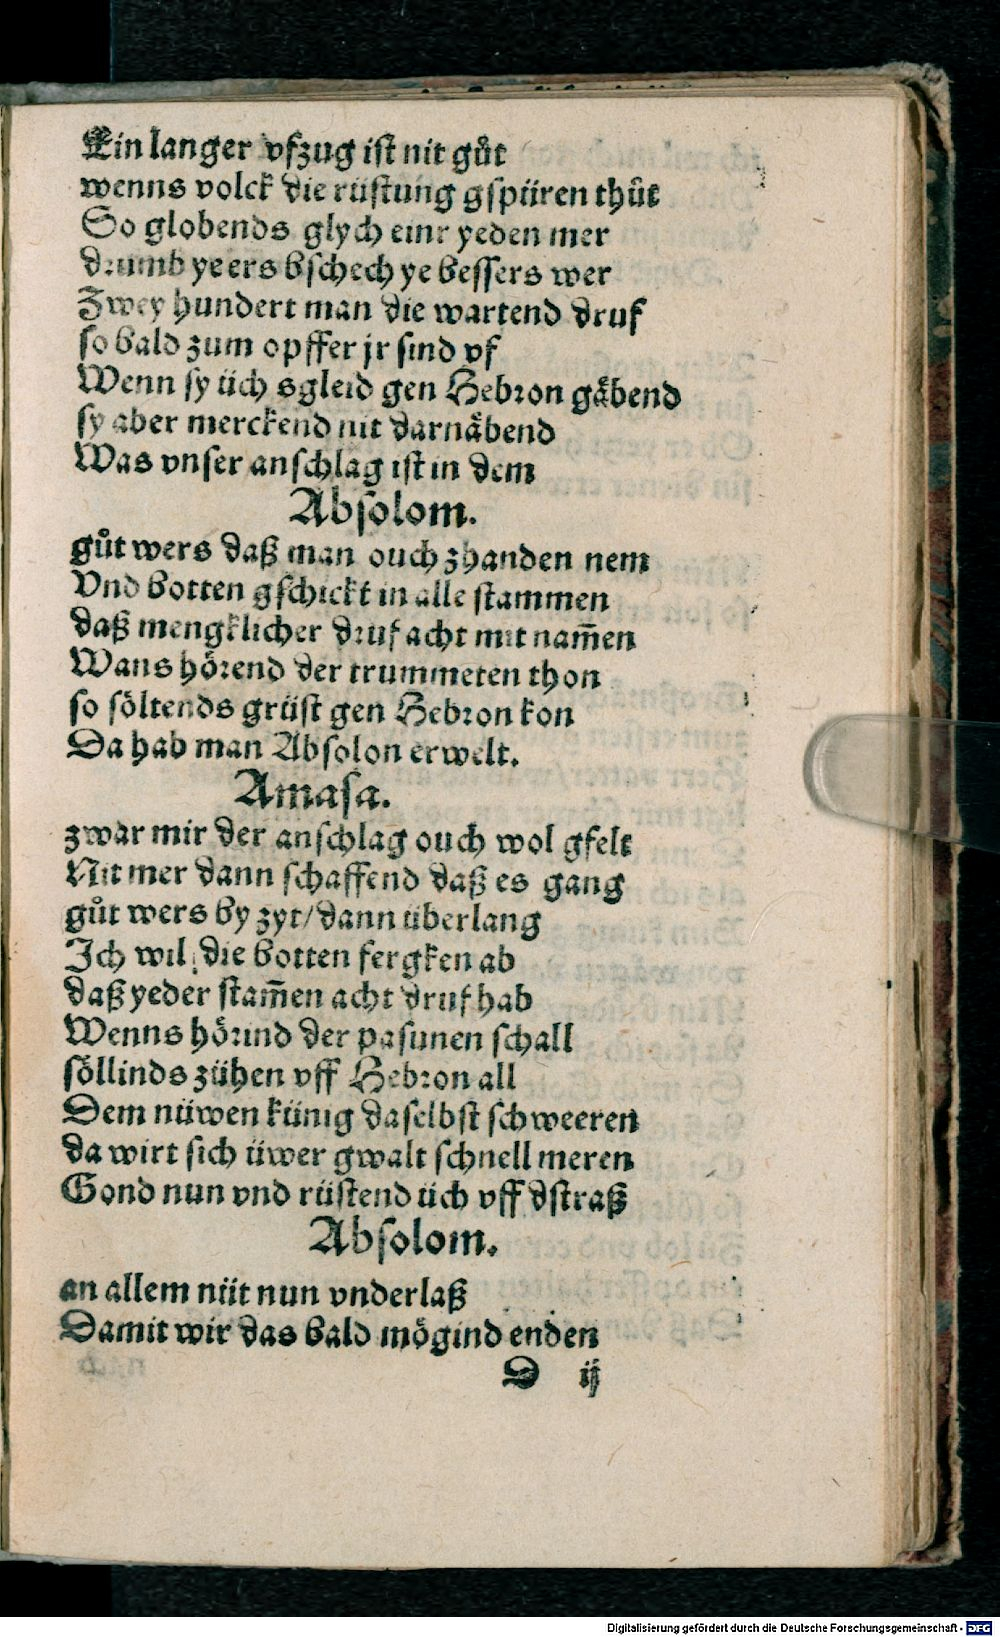 Ein langer vfzug ist nit gůt
wenns volck die rüstung gspüren thůt
So globends glych einr yeden mer
drumb ye ers bschech ye bessers wer
Zwey hundert man die wartend druf
so bald zum opffer jr sind vf
Wenn sy üch sgleid gen Hebron gåbend
sy aber merckend nit darnåbend
Was vnser anschlag ist in dem
Absolom.
gůt wers daß man ouch zhanden nem
Vnd botten gschickt in alle stammen
daß mengklicher druf acht mit nam̃en
Wans hörend der trummeten thon
so söltends grüst gen Hebron kon
Da hab man Absolon erwelt.
Amasa.
zwar mir der anschlag ouch wol gfelt
Nit mer dann schaffend daß es gang
gůt wers by zyt/dann überlang
Ich wil die botten fergken ab
daß yeder stam̃en acht druf hab
Wenns hörind der pasunen schall
söllinds zühen vff Hebron all
Dem nüwen künig daselbst schweeren
da wirt sich üwer gwalt schnell meren
Gond nun vnd rüstend üch vff dstraß
Absolom.
an allem nüt nun vnderlaß
Damit wir das bald mögind enden
D ij
Digitalisierung gefördert durch die Deutsche Forschungsgemeinschaft - DFG